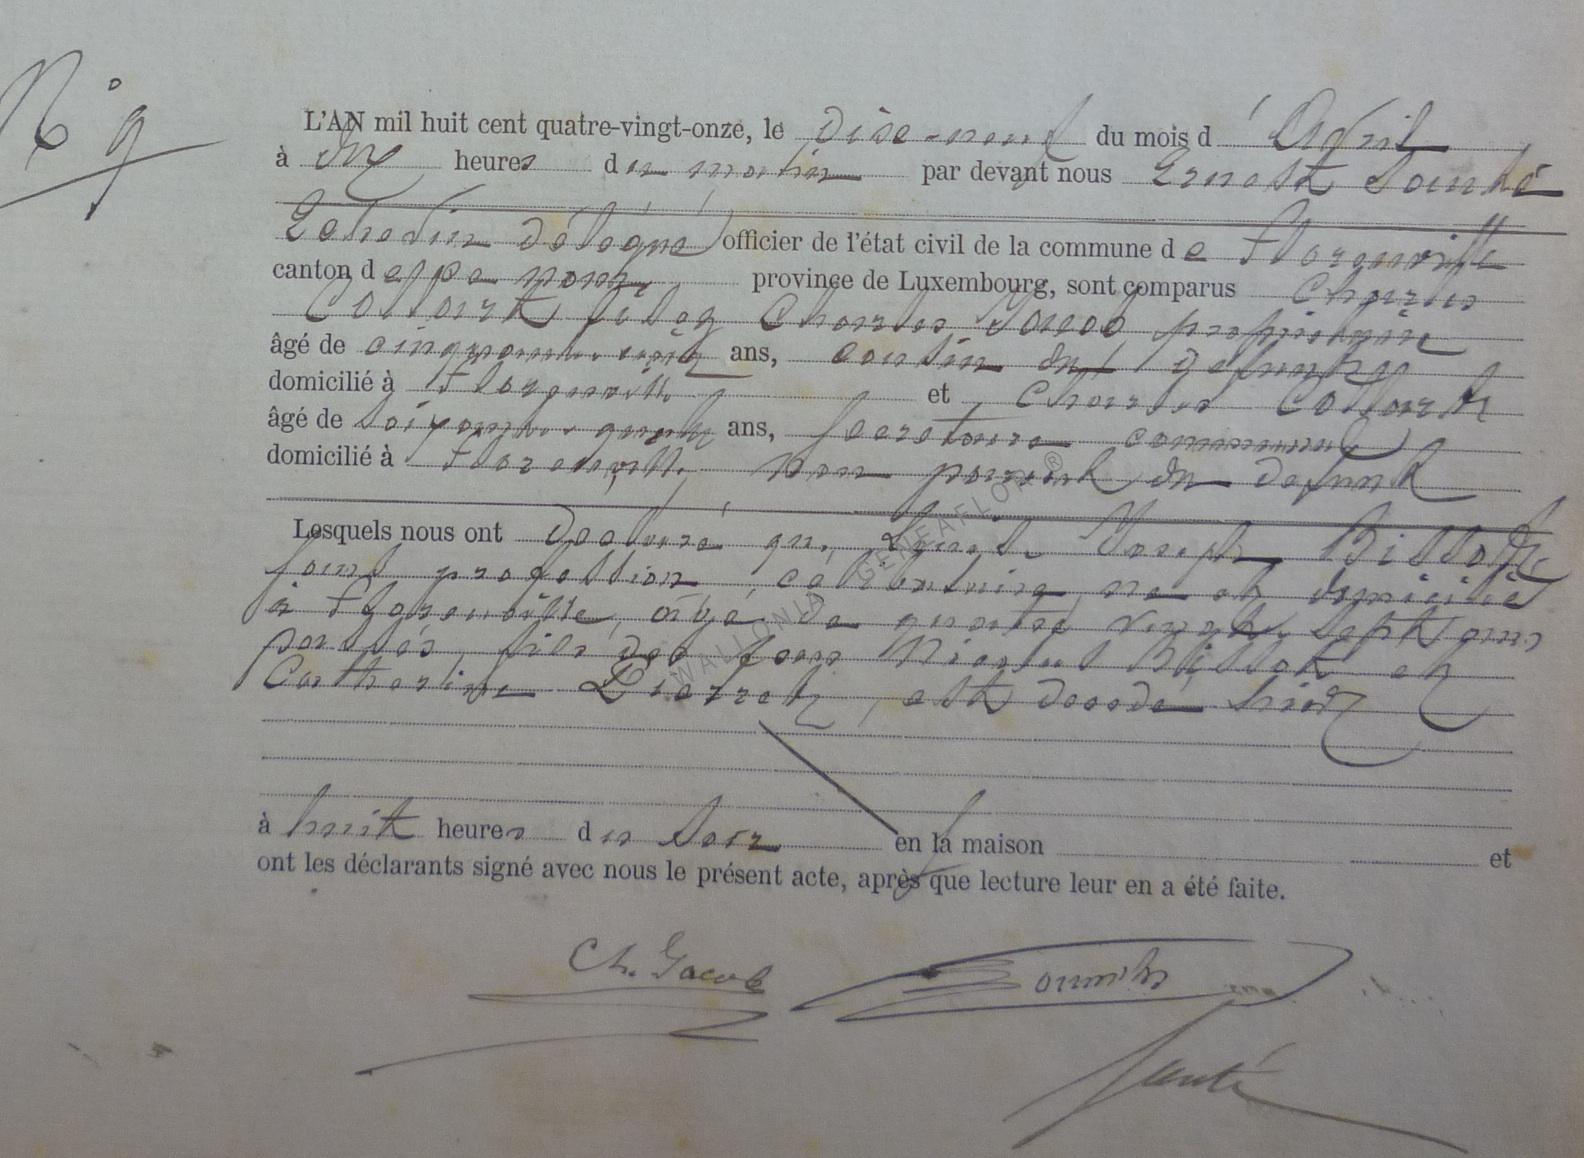 N° 9
L'AN mil huit cent quatre-vingt-onze, le dixe-neuf du mois d'Avril
à dix heures du matin par devant nous Ernest Santé
Echevin délégué officier de l'état civil de la commune de Florenville
canton de province de Luxembourg, sont comparus Charles
Charles Jacob, propriétaire
âgé de cinquante ans, cousin du défunt
domicilié à Florenville et Charles
âgé de soixante ans, secrétaire communal
domicilié à Florenville, non parent du défunt
Lesquels nous ont déclaré que Joseph
sans profession, célibataire, né et domicilié
à Florenville, âgé de quatre vingt sept ans
passés, fils des feus Nicolas et
Catherine Pierret, est décédé hier
à huit heures du soir en la maison et
ont les déclarants signé avec nous le présent acte, après que lecture leur en a été faite.
Ch. Jacob
Santé
WALLONIA GENEAFLOR ®